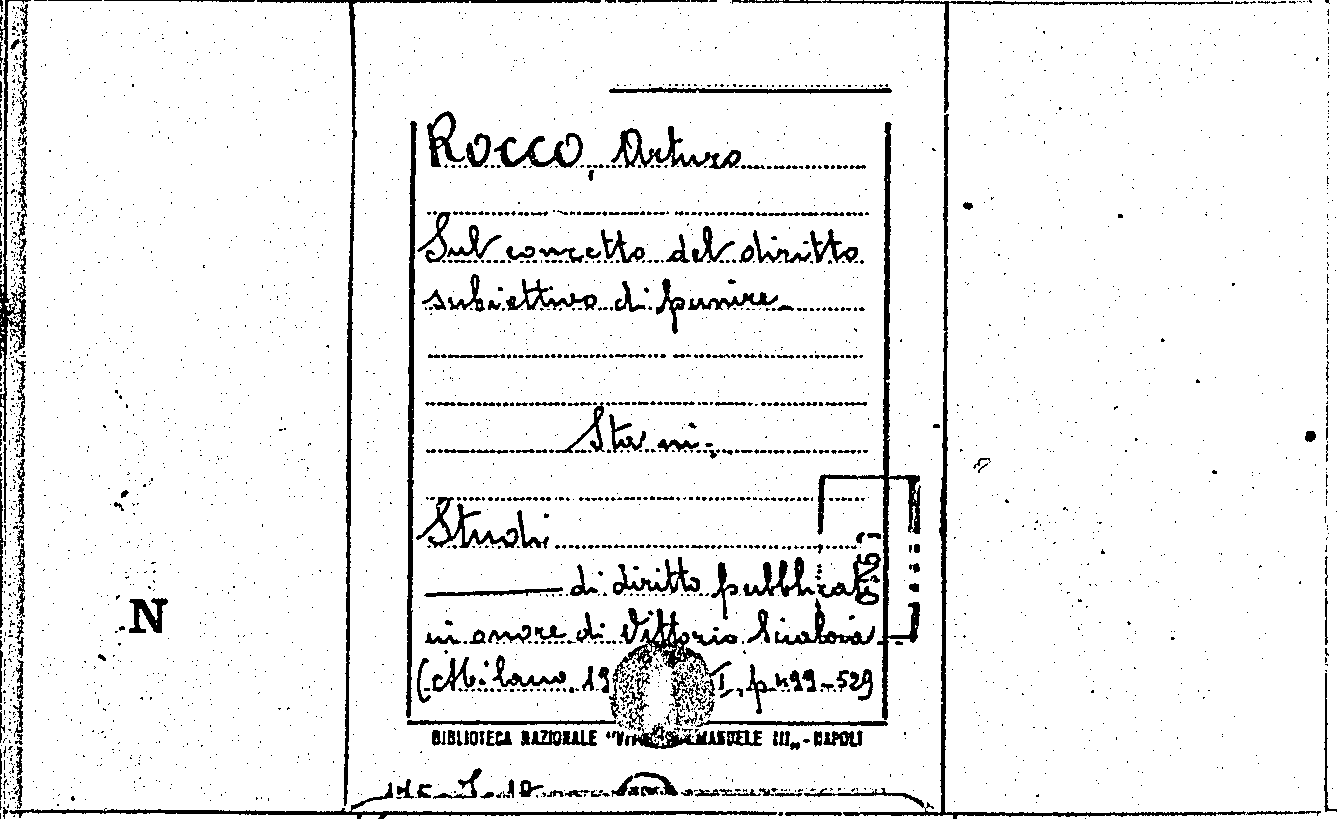 ROCCO, Arturo
Sul concetto del diritto
subiettivo di punire.
Sta in:
Studi
di diritto pubblicati
in onore di Vittorio Scialoia
(Milano, 19 I, p 499-529
N
BIBLIOTECA NAZIONALE EMANUELE III„-NAPOLI